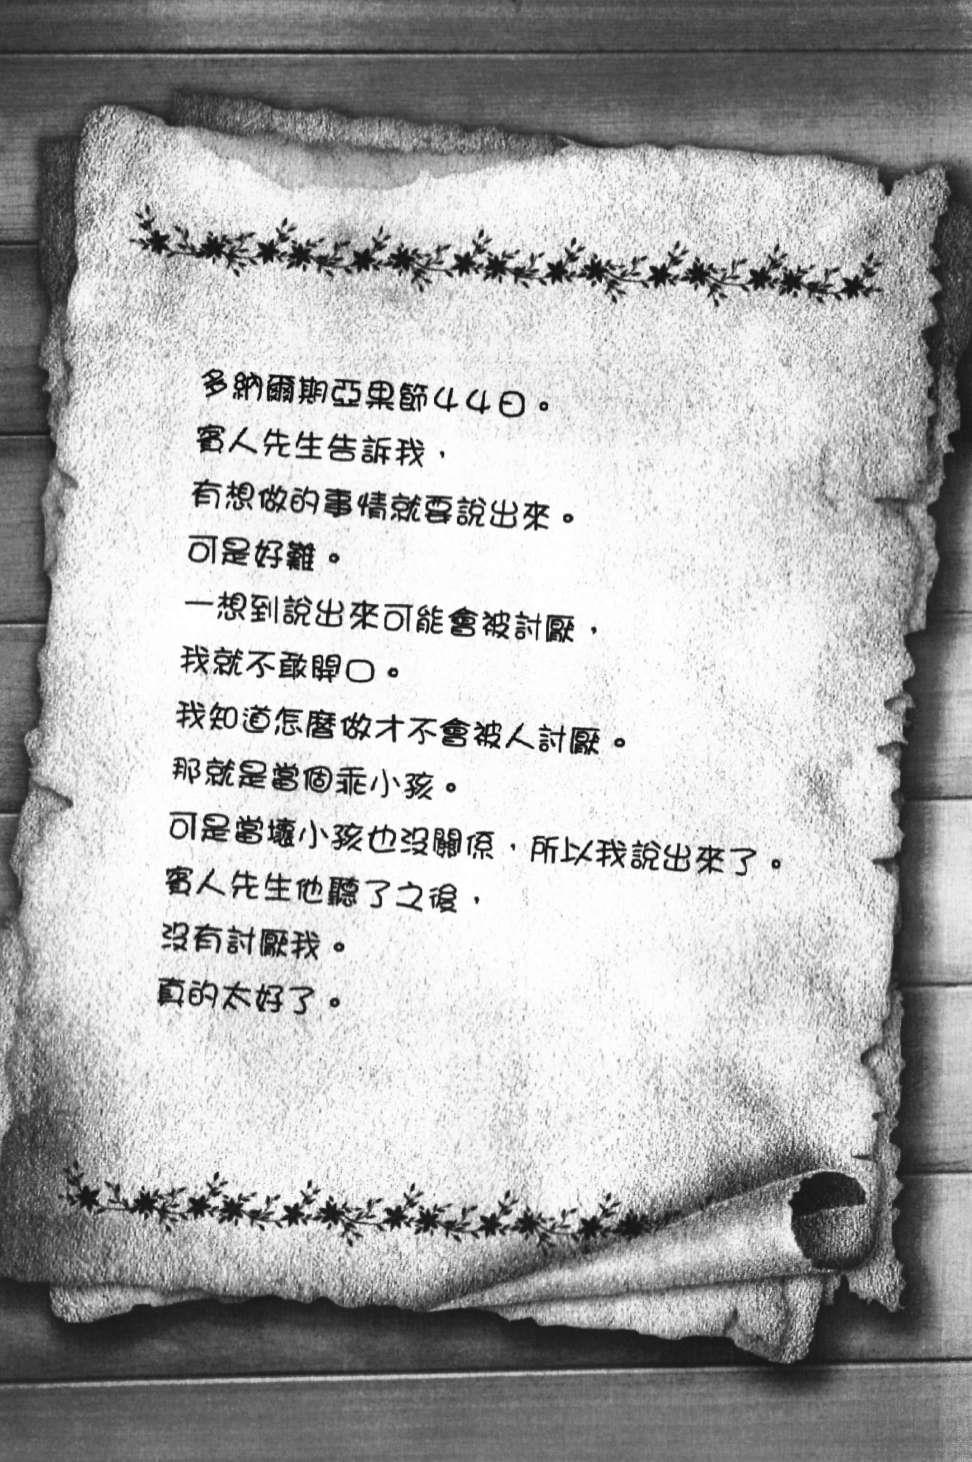 多納爾期亞果節44日。
賓人先生告訴我，
有想做的事情就要說出來。
可是好難。
一想到說出來可能會被討厭，
我就不敢開口。
我知道怎麼做才不會被人討厭。
那就是當個乖小孩。
可是當壞小孩也沒關係，所以我說出來了。
賓人先生他聽了之後，
沒有討厭我。
真的太好了。